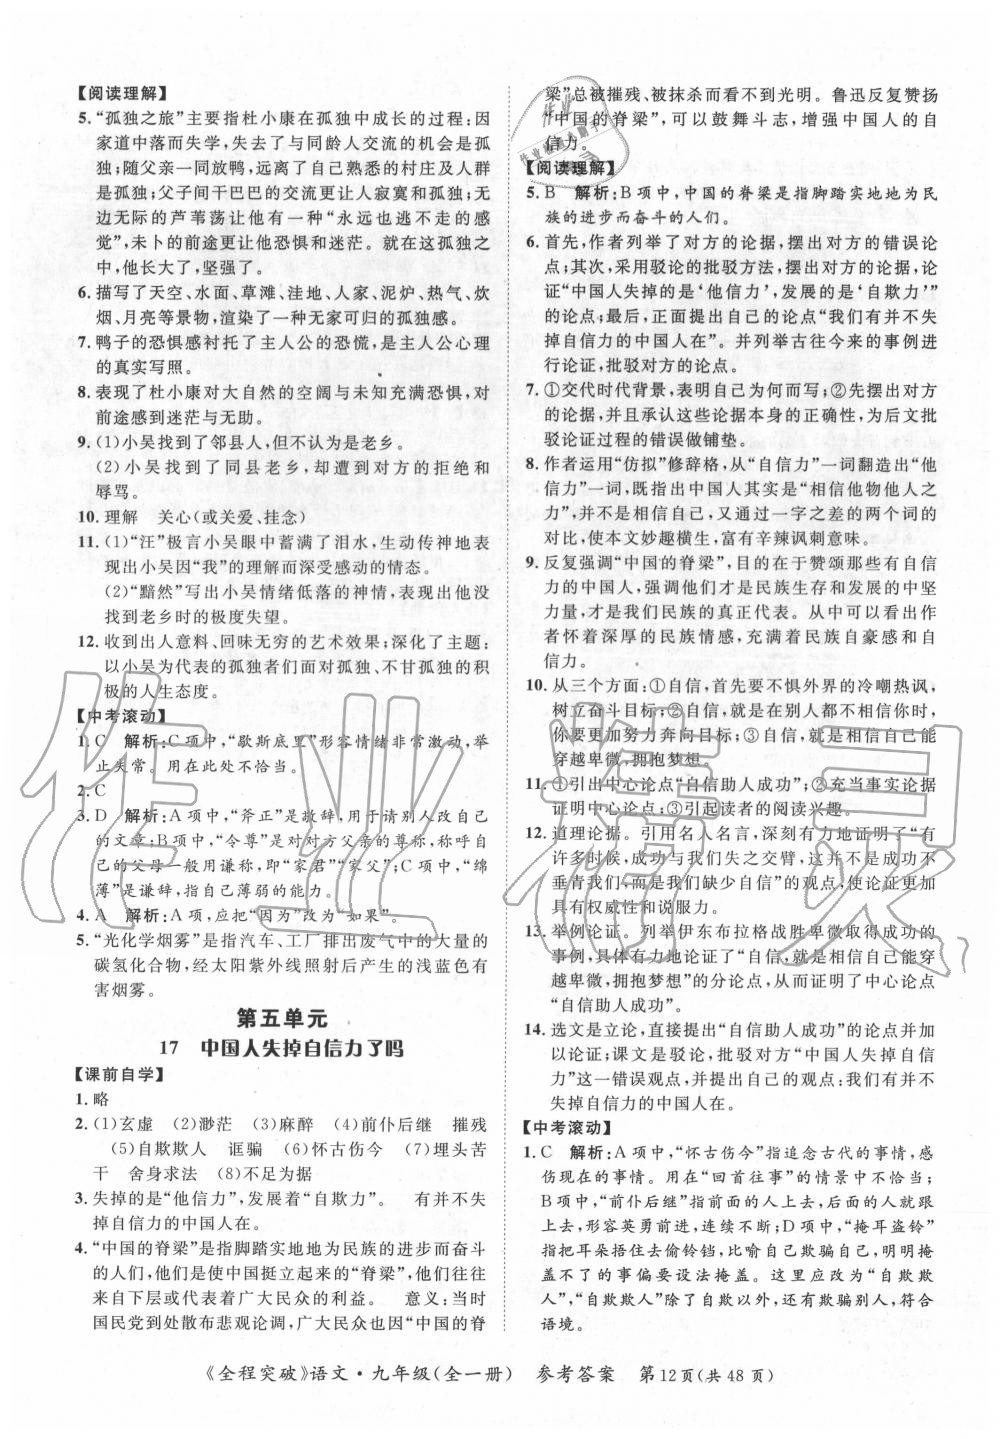 【阅读理解】
5. “孤独之旅”主要指杜小康在孤独中成长的过程:因
家道中落而失学,失去了与同龄人交流的机会是孤
独;随父亲一同放鸭,远离了自己熟悉的村庄及人群
是孤独;父子间干巴巴的对话更让人寂寞和孤独。无
边无际的芦苇荡让他有一种“永远也逃不走的感
觉”,未卜的前途更让他恐惧和迷茫。就在这孤独之
中,他长大了,坚强了。
6. 描写了天空、水面、草滩、洼地、人家、泥炉、热气、炊
烟、月亮等景物,渲染了一种无依无靠的孤独感。
7. 鸭子的恐惧感衬托了主人公的恐慌,是主人公心理
的真实写照。
8. 表现了杜小康对大自然的空阔与未知充满恐惧,对
前途感到迷茫与无助。
9. (1)小吴找到了邻县人,但不认为是老乡。
(2)小吴找到了同县老乡,却遭到对方的拒绝和
辱骂。
10. 理解 关心(或关爱、挂念)
11. (1)“汪”极言小吴眼中蓄满了泪水,生动传神地表
现出小吴因“我”的理解而深受感动的情态。
(2)“黯然”写出小吴情绪低落的神情,表现出他没
找到老乡时的极度失望。
12. 收到出人意料、回味无穷的艺术效果;深化了主题:
以小吴为代表的孤独者们面对孤独、不甘孤独的积
极的人生态度。
【中考滚动】
1. C 解析:C项中,“歇斯底里”形容情绪非常激动,举
止失常。用在此处不恰当。
2. C
3. D 解析:A项中,“斧正”是敬辞,用于请别人改自己
的文章;B项中,“令尊”是对对方父亲的尊称,称呼自
己的父母一般用谦称,即“家君”“家父”;C项中,“绵
薄”是谦辞,指自己薄弱的能力。
4. A 解析:A项,应把“因为”改为“如果”。
5. “光化学烟雾”是指汽车、工厂排出废气中的大量的
碳氢化合物,经太阳紫外线照射后产生的浅蓝色有
害烟雾。
第五单元
17 中国人失掉自信力了吗
【课前自学】
1. 略
2. (1)玄虚 (2)渺茫 (3)麻醉 (4)前仆后继 摧残
(5)自欺欺人 诓骗 (6)怀古伤今 (7)埋头苦
干 舍身求法 (8)不足为据
3. 失掉的是“他信力”,发展着“自欺力”。 有并不失
掉自信力的中国人在。
4. “中国的脊梁”是指脚踏实地地为民族的进步而奋斗
的人们,他们是使中国挺立起来的“脊梁”,他们往往
来自下层或代表着广大民众的利益。 意义:当时
国民党到处散布悲观论调,广大民众也因“中国的脊
梁”总被摧残、被抹杀而看不到光明。鲁迅反复赞扬
“中国的脊梁”,可以鼓舞斗志,增强中国人的自
信力。
【阅读理解】
5. B 解析:B项中,中国的脊梁是指脚踏实地地为民
族的进步而奋斗的人们。
6. 首先,作者列举了对方的论据,摆出对方的错误论
点;其次,采用驳论的批驳方法,摆出对方的论据,论
证“中国人失掉的是‘他信力’,发展的是‘自欺力’”
的论点;最后,正面提出自己的论点“我们有并不失
掉自信力的中国人在”。并列举古往今来的事例进
行论证,批驳对方的论点。
7. ①交代时代背景,表明自己为何而写;②先摆出对方
的论据,并且承认这些论据本身的正确性,为后文批
驳论证过程的错误做铺垫。
8. 作者运用“仿拟”修辞格,从“自信力”一词翻造出“他
信力”一词,既指出中国人其实是“相信他物他人之
力”,并不是相信自己,又通过一字之差的两个词的
对比,使本文妙趣横生,富有辛辣讽刺意味。
9. 反复强调“中国的脊梁”,目的在于赞颂那些有自信
力的中国人,强调他们才是民族生存和发展的中坚
力量,才是我们民族的真正代表。从中可以看出作
者怀着深厚的民族情感,充满民族自豪感和自
信力。
10. 从三个方面:①自信,首先要不惧外界的冷嘲热讽,
树立奋斗目标;②自信,就是在别人都不相信你时,
你要更加努力奔向目标;③自信,就是相信自己能
穿越卑微,拥抱梦想。
11. ①引出中心论点“自信助人成功”;②充当事实论据
证明中心论点;③引起读者的阅读兴趣。
12. 道理论据。引用名人名言,深刻有力地证明了“有
许多时候,成功与我们失之交臂,这并不是成功不
垂青我们,而是我们缺少自信”的观点,使论证更加
具有权威性和说服力。
13. 举例论证。列举伊东布拉格战胜卑微取得成功的
的事例,具体有力地论证了“自信,就是相信自己能穿
越卑微,拥抱梦想”的分论点,从而证明了中心论点
“自信助人成功”。
14. 选文是立论,直接提出“自信助人成功”的论点并加
以论证;课文是驳论,批驳对方“中国人失掉自信力
了”这一错误观点,进而提出自己的观点:我们有并
不失掉自信力的中国人在。
【中考滚动】
1. C 解析:A项中,“怀古伤今”指追念古代的事情,感
伤现在的事情。用在“回首往事”的情景中不恰当;
B项中,“前仆后继”指前面的人上去,后面的人就跟
上去,形容英勇前进,连续不断;D项中,“掩耳盗铃”
指把耳朵捂住去偷铃铛,比喻自己欺骗自己,明明掩
盖不了的事偏要设法掩盖。这里应改为“自欺欺
人”,“自欺欺人”除了自欺以外,还有欺骗别人,符合
语境。
《全程突破》语文·九年级(全一册) 参考答案 第12页(共48页)
作业精灵